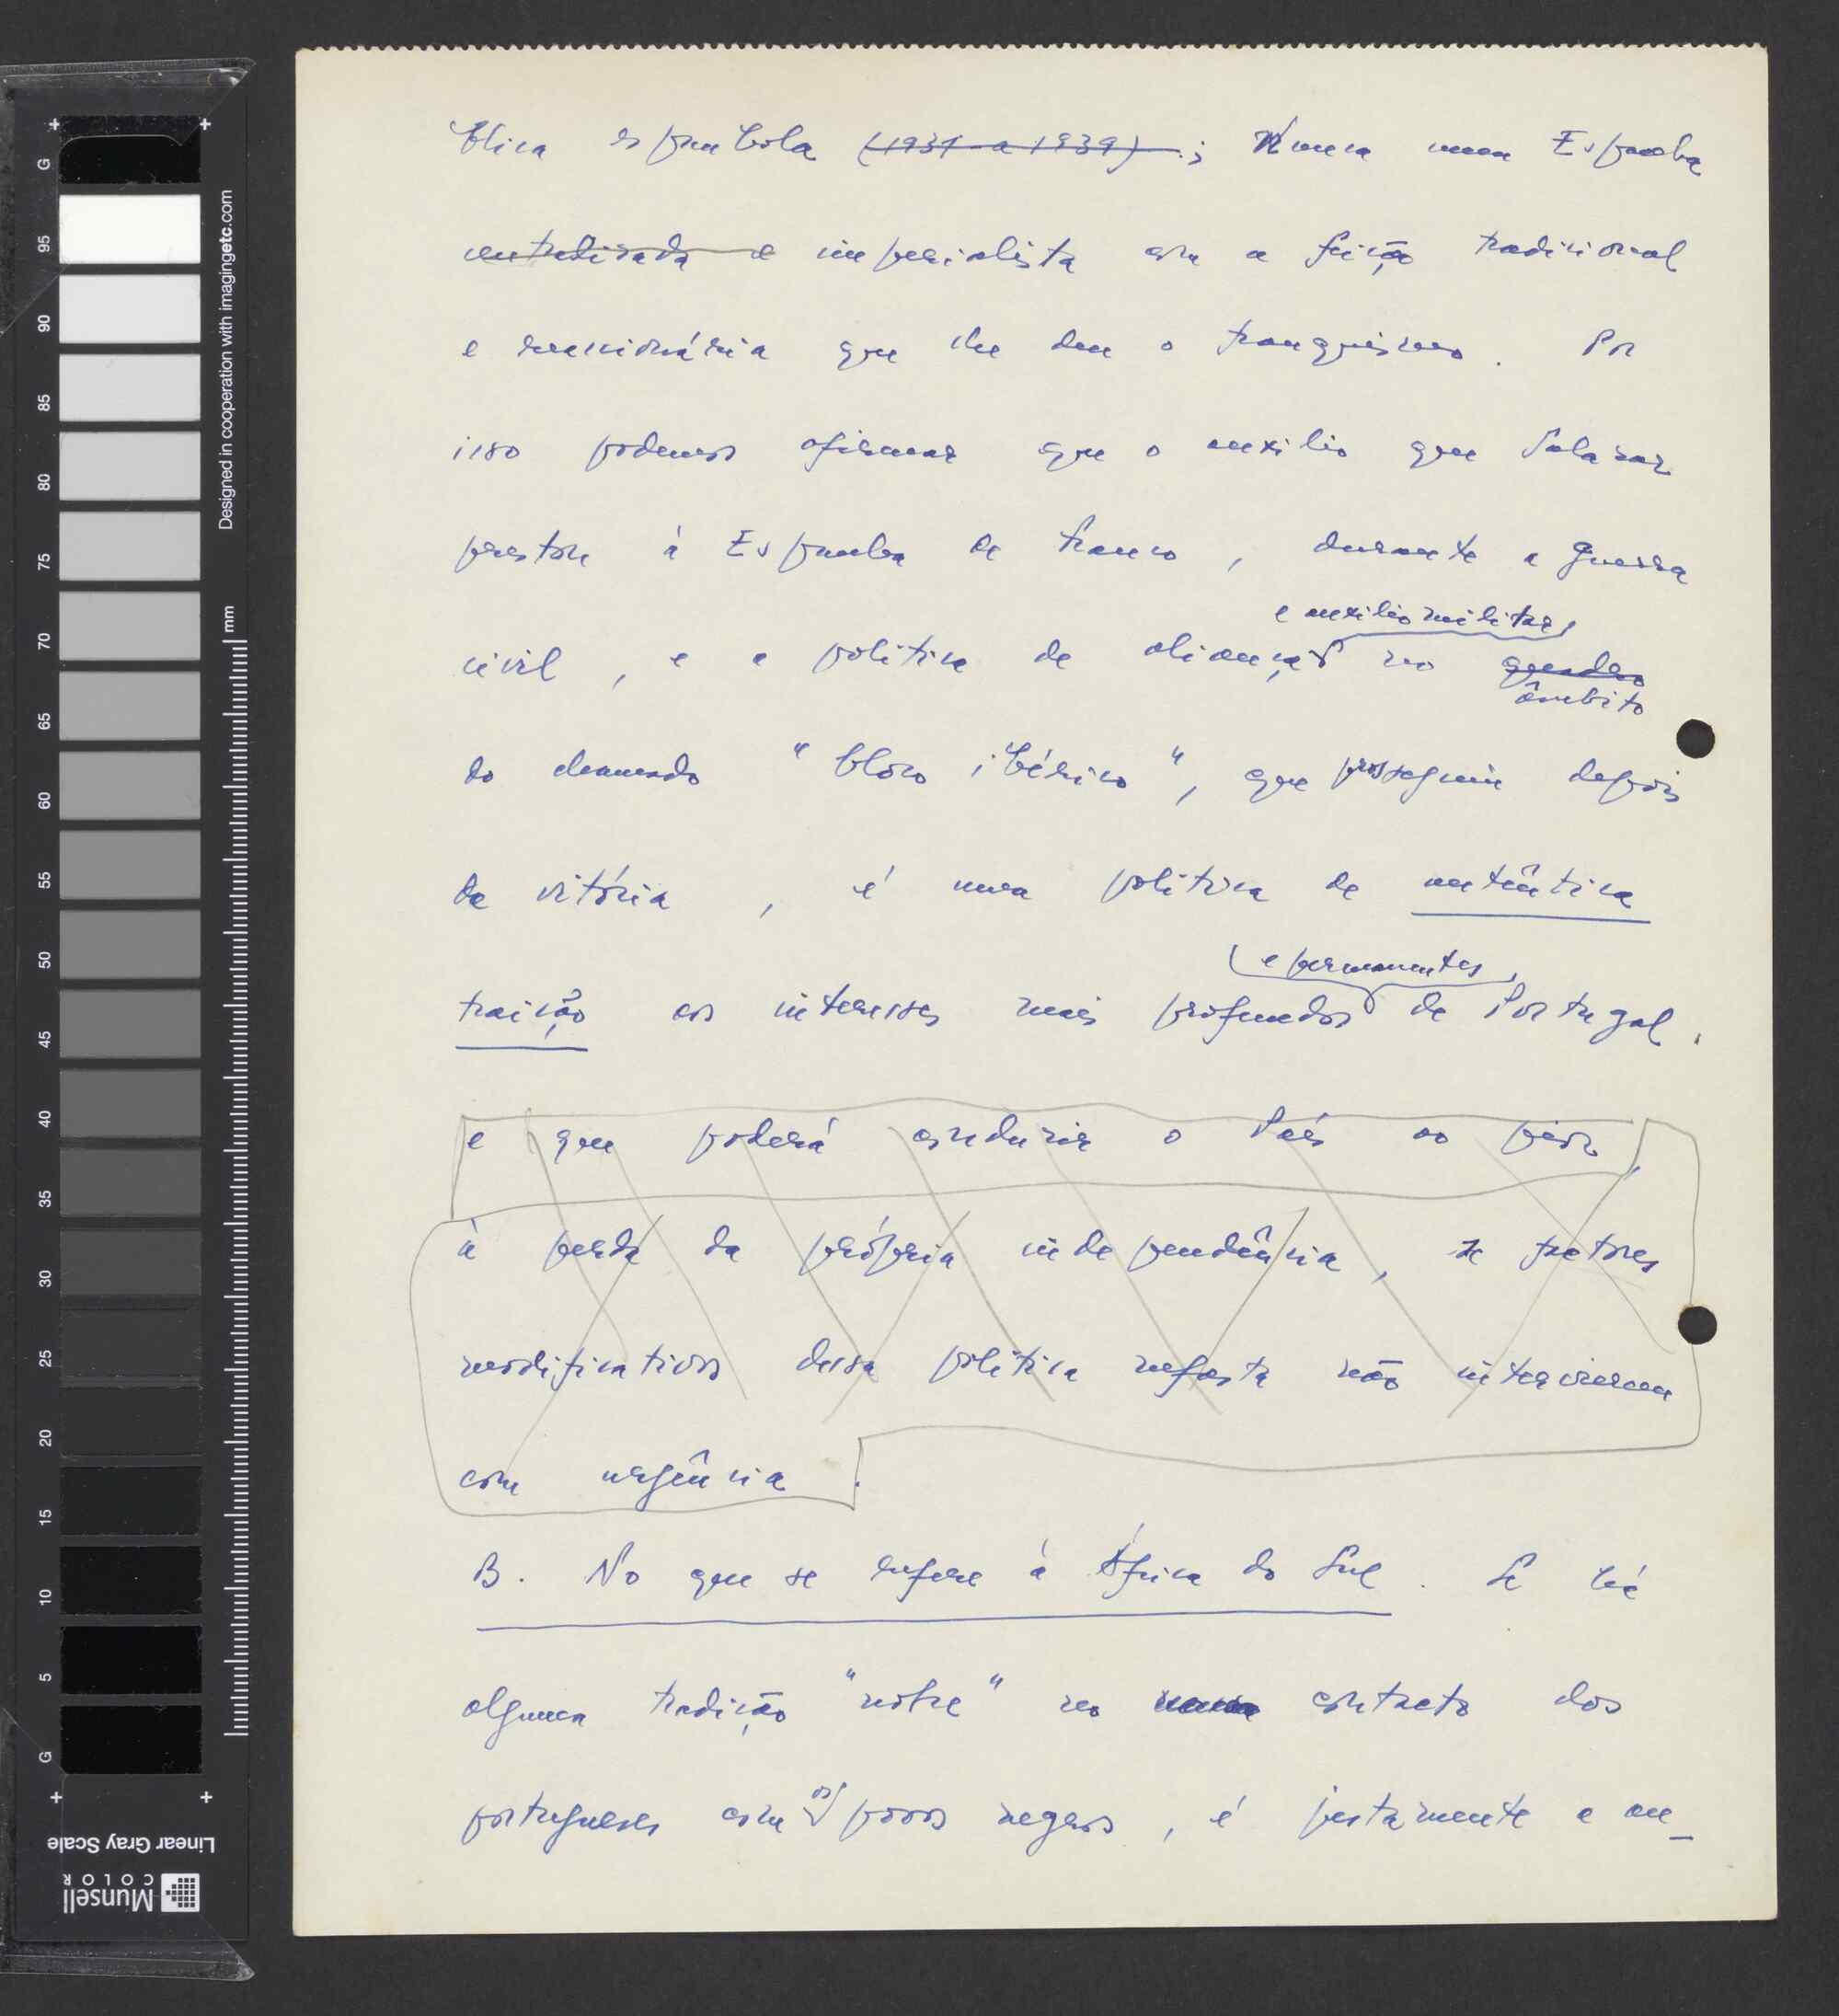 blica espanhola (1931 a 1939); Nunca uma Espanha
centralizada e imperialista com a feição tradicional
e reaccionária que lhe deu o franquismo. Por
isso podemos afirmar que o auxílio que Salazar
prestou à Espanha de Franco, durante a guerra
e auxílio militar,
civil, e a política de aliança no quadro
âmbito
do chamado "bloco ibérico", que prosseguiu depois
da vitória, é uma política de autêntica
e permanentes,
traição aos interesses mais profundos de Portugal.
e que poderá conduzir o País ao pior,
à perda da própria independência, se factores
modificativos dessa política nefasta não intervierem
com urgência.
B. No que se refere à África do Sul. Se há
alguma tradição "nobre" no contacto dos
os
portugueses com povos negros, é justamente a au_
Designed in cooperation with imagingetc.com
mm
G
95
90
85
80
75
70
65
60
55
50
45
40
35
30
25
20
15
10
5
G
Linear Gray Scale
Munsell
COLOR